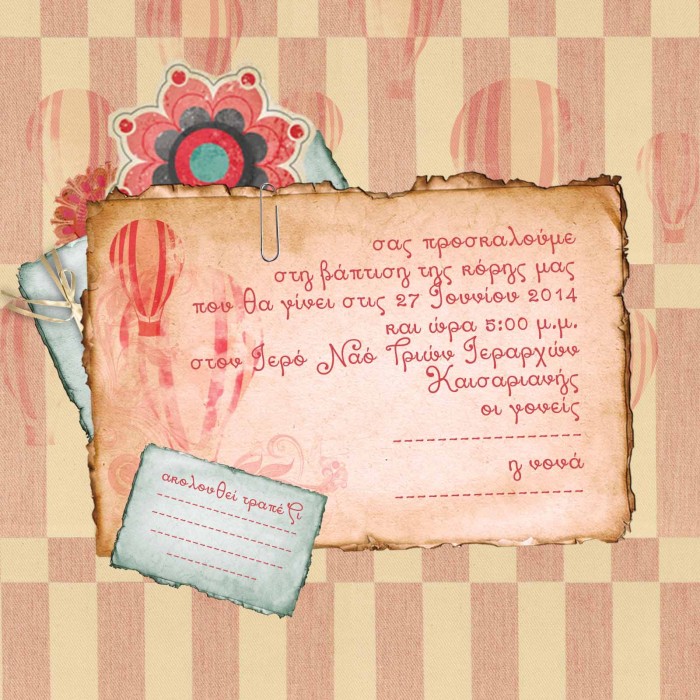 σας προσκαλούμε
στη βάπτιση της κόρης μας
που θα γίνει στις 27 Ιουνίου 2014
και ώρα 5:00 μ.μ.
στον Ιερό Ναό Τριών Ιεραρχών
Καισαριανής
οι γονείς
η νονά
ακολουθεί τραπέζι